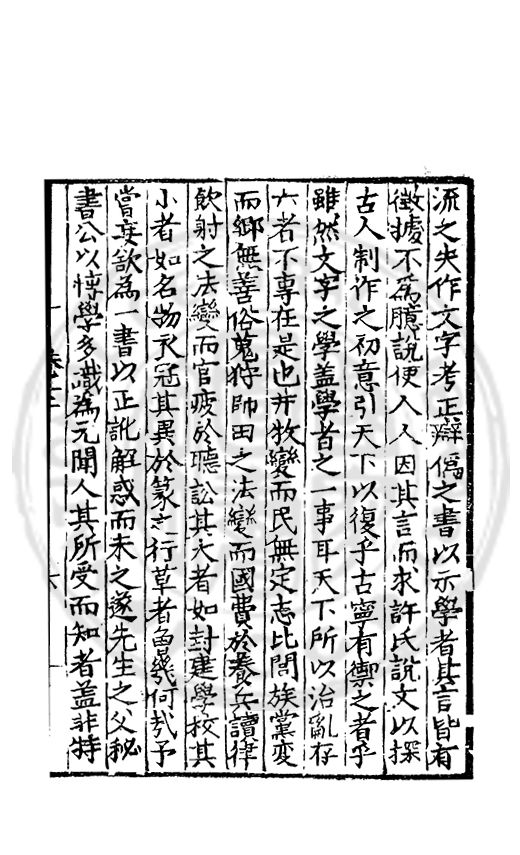 流之失作文字考正辯僞之書以示學者其言皆有
徵據不爲臆說使人人因其言而求許氏說文以探
古人制作之初意引天下以復乎古寧有禦之者乎
雖然文字之學盖學者之一事耳天下所以治亂存
亡者不專在是也井牧變而民無定志比閭族黨変
而鄉無善俗蒐狩師田之法變而國費於養兵讀律
飲射之法變而官疲於聽訟其大者如封建學校其
小者如名物衣冠其異於篆之行草者
幾何㢤予
嘗妄欲為一書以正訛解惑而未之遂先生之父秘
書公以博學多識爲元聞人其所受而知者盖非特
卷之三
六